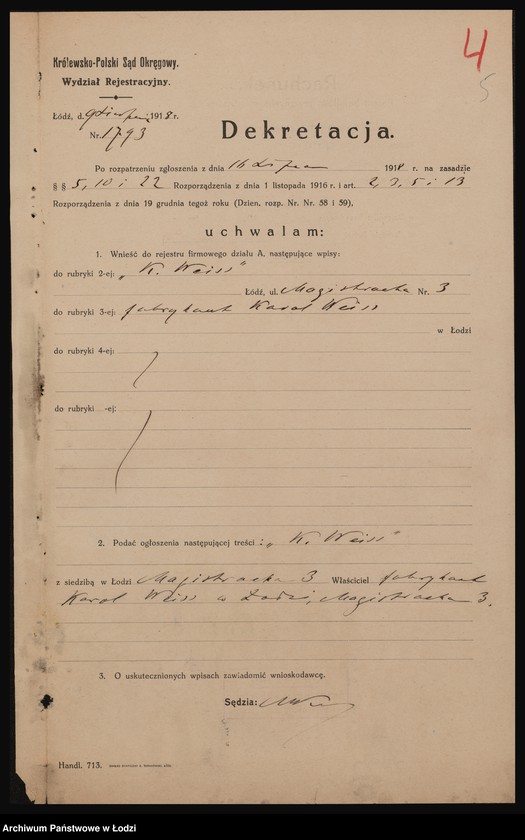 4
5
Królewsko-Polski Sąd Okręgowy.
Wydział Rejestracyjny.
Łódź, d. 9 sierpnia 1918 r.
Nr. 1793
Dekretacja.
Po rozpatrzeniu zgłoszenia z dnia 16 Lipca 1918 r. na zasadzie
§ § 5, 10 i 22 Rozporządzenia z dnia 1 listopada 1916 r. i art. 2, 3, 5 i 13
Rozporządzenia z dnia 19 grudnia tegoż roku (Dzien. rozp. Nr. Nr. 58 i 59),
uchwalam:
1. Wnieść do rejestru firmowego działu A, następujące wpisy:
do rubryki 2-ej: „K. Weiss"
Łódź, ul. Magistracka Nr. 3
do rubryki 3-ej: fabrykant Karol Weiss
w Łodzi
do rubryki 4-ej:
do rubryki -ej:
2. Podać ogłoszenia następującej treści: „K. Weiss"
z siedzibą w Łodzi Magistracka 3 Właściciel fabrykant
Karol Weiss w Łodzi, Magistracka 3.
3. O uskutecznionych wpisach zawiadomić wnioskodawcę.
Sędzia:
Handl. 713.
Archiwum Państwowe w Łodzi